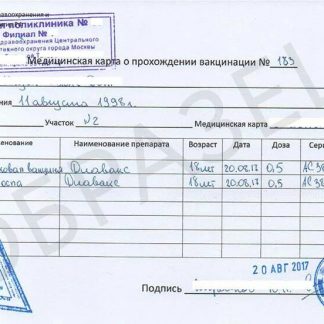 равоохранения и
поликлиника №
Филиал №
дравоохранения Центрального
тивного округа города Москвы
Медицинская карта о прохождении вакцинации № 189
ния 11 августа 1998 г.
Участок №2 Медицинская карта
менование Наименование препарата Возраст Дата Доза Сери
ковая вакцина Диавакс 18 лет 20.08.17 0,5 АС38
оспа Диавакс 18 лет 20.08.17 0,5 АС38
ОБРАЗЕЦ
20 АВГ 2017
Подпись